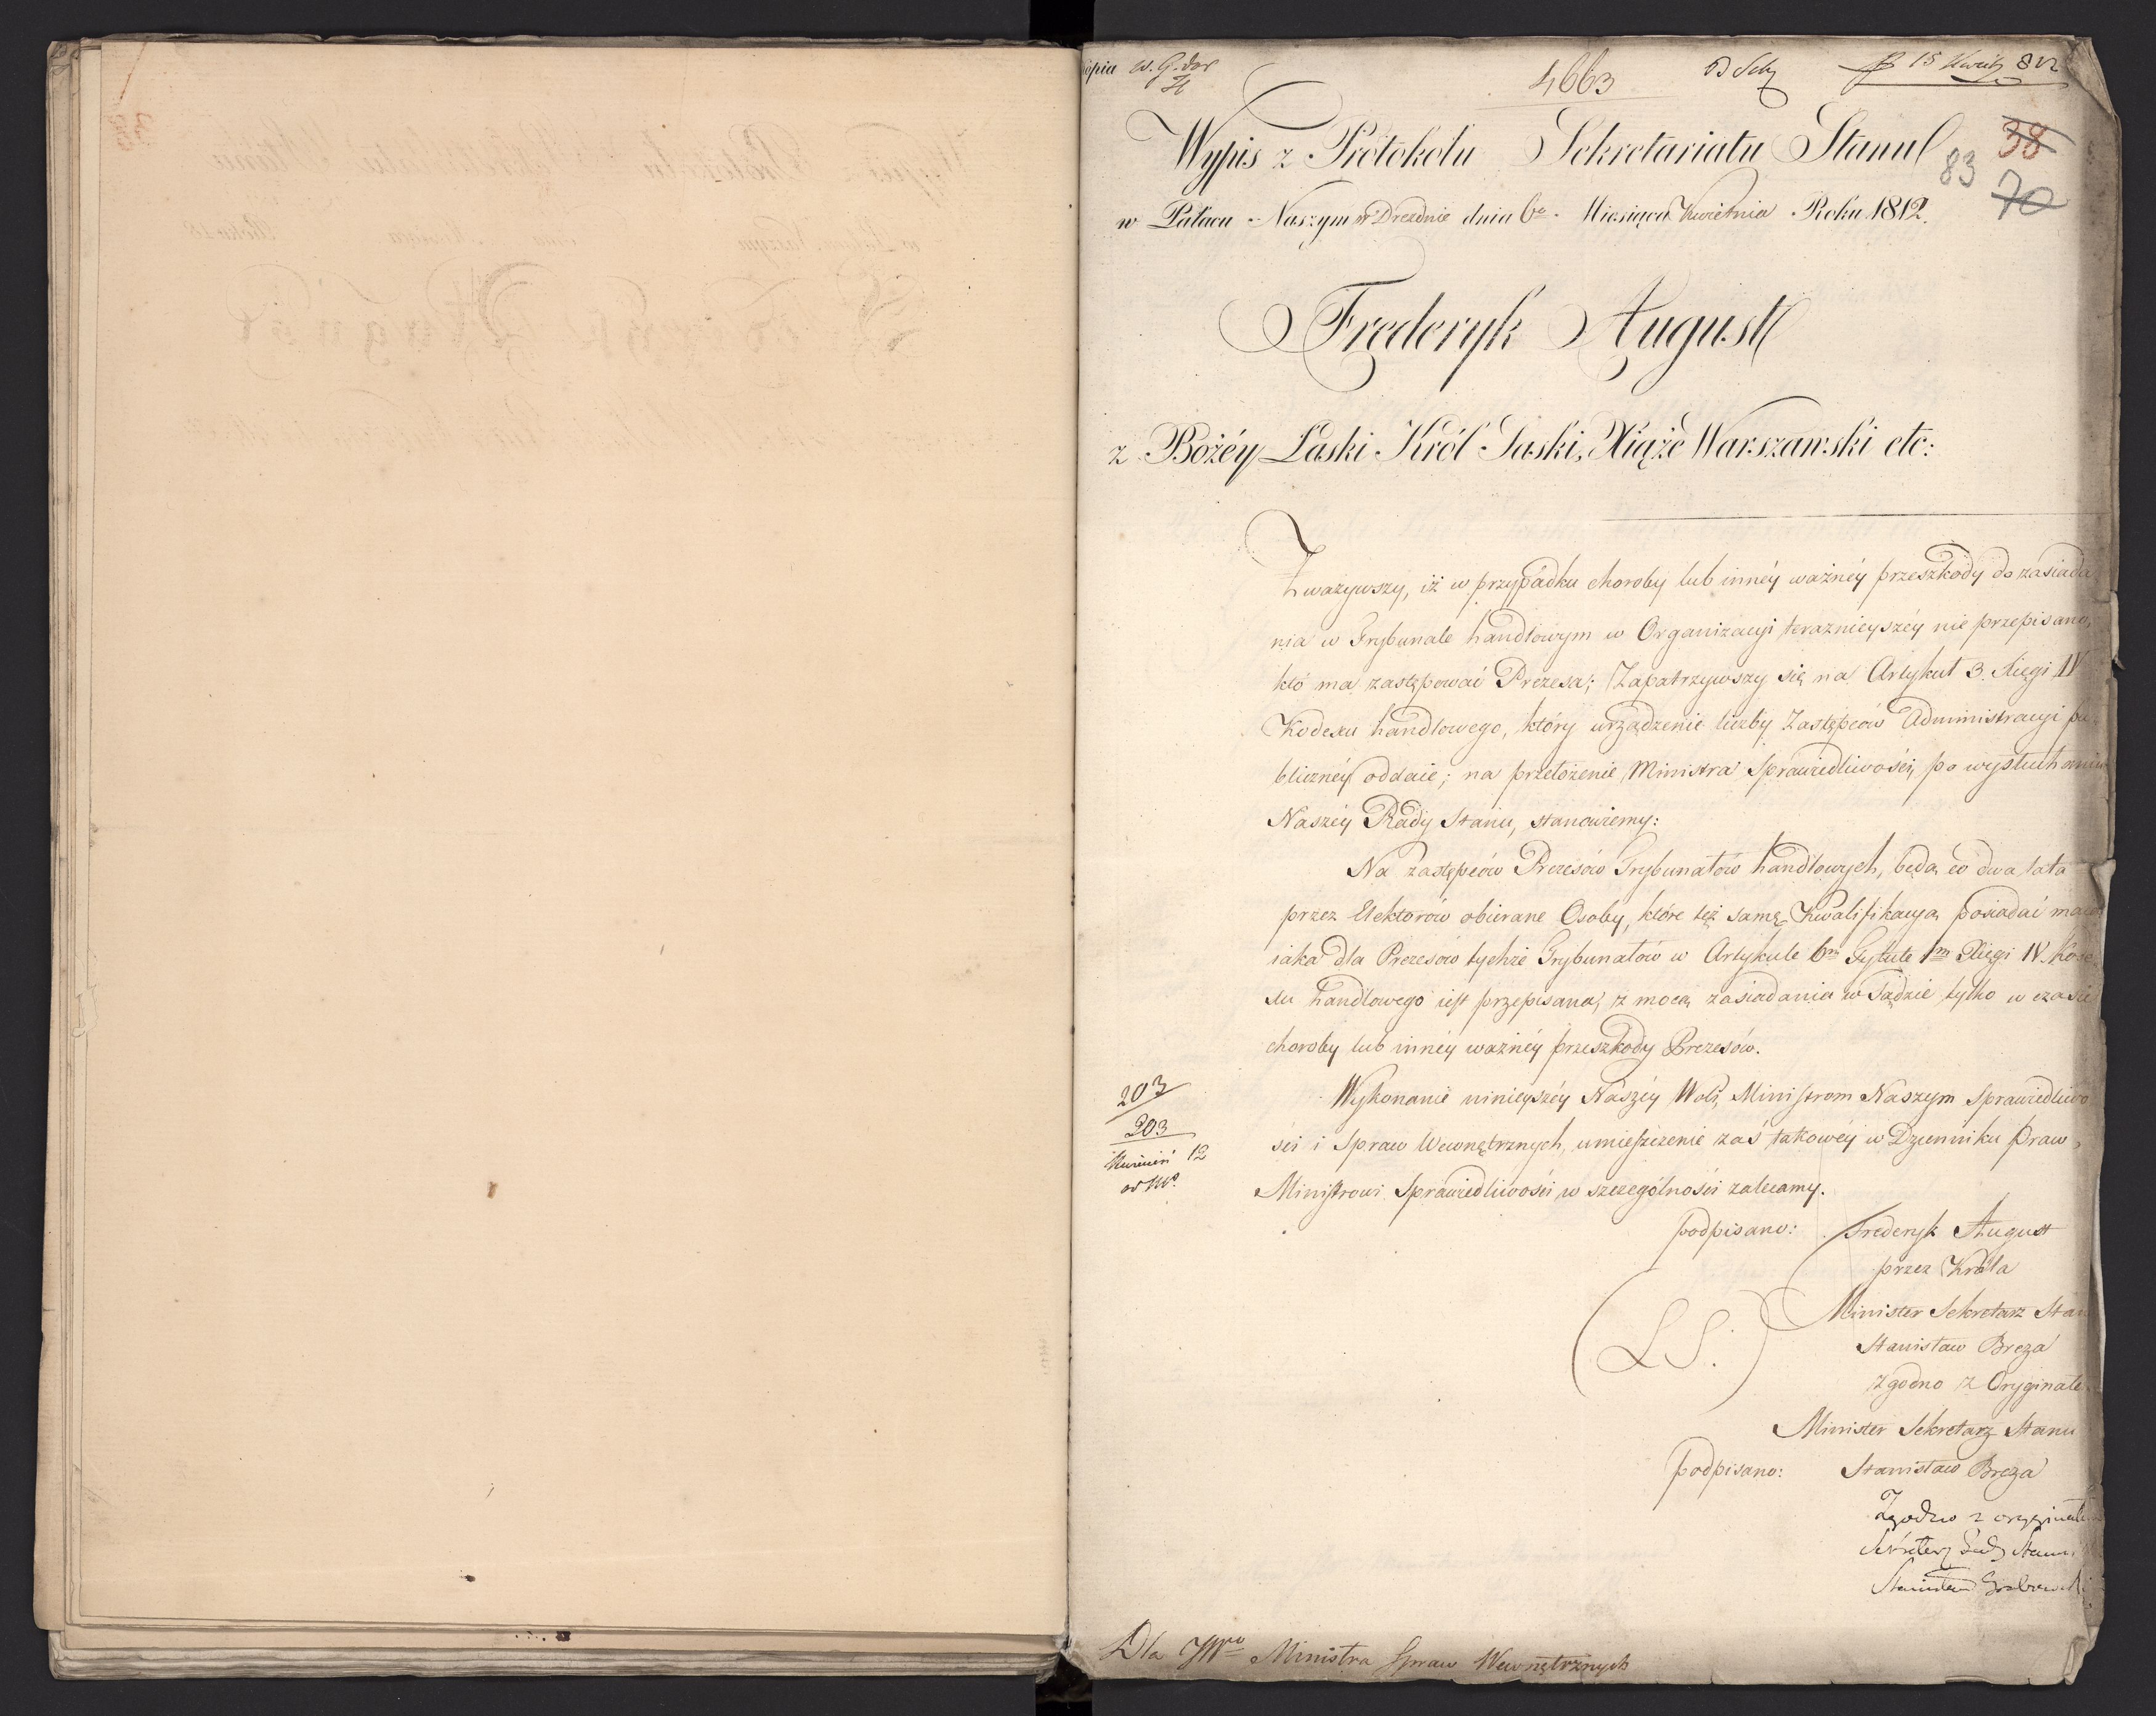 kopia w. G. dor
4663
15 Kwiet 812
38
83
70
Wypis z Protokołu Sekretariatu Stanu
w Pałacu Naszym w Dreźnie dnia 6o Miesiąca Kwietnia Roku 1812.
Frederyk August
z Bożéy Łaski Król Saski, Xiąże Warszawski etc:
Zważywszy, iż w przypadku choroby lub innéy ważnéy przeszkody do zasiada
nia w Trybunale handlowym w Organizacyi teraznieyszéy nie przepisano,
kto ma zastępować Prezesa; Zapatrzywszy się na Artykuł 3. Xięgi IV
Kodexu handlowego, który urządzenie liczby Zastępców Administracyi pu
bliczney oddaie; na przełożenie Ministra Sprawiedliwości, po wysłuchaniu
Naszéy Rady Stanu, stanowiemy:
Na zastępców Prezesów Trybunałów handlowych, będą co dwa lata
przez Elektorów obierane Osoby, które też samą Kwalifikacyą posiadać maią
iaka dla Prezesów tychże Trybunałów w Artykule 6m Tytule 1m Xięgi IV. Kode
xu handlowego iest przepisana, z mocą zasiadania w Sądzie tylko w czasie
choroby lub innéy ważnéy przeszkody Prezesów.
Wykonanie ninieyszéy Naszéy Woli, Ministrom Naszym Sprawiedliwo
ści i Spraw Wewnętrznych, umieszczenie zaś takowéy w Dzienniku Praw,
Ministrowi Sprawiedliwości w szczególności zalecamy.
203
203
Kwiecień 12
podpisano: Frederyk August
przez Króla
Minister Sekretarz Stanu
Stanisław Breza
(L S.)
zgodno z Oryginałe
Minister Sekretarz Stanu
podpisano: Stanisław Breza
Zgodno z oryginałe
Sekretarz Rady Stanu
Stanisław Grabowski
Dla JWgo Ministra Spraw Wewnętrznych